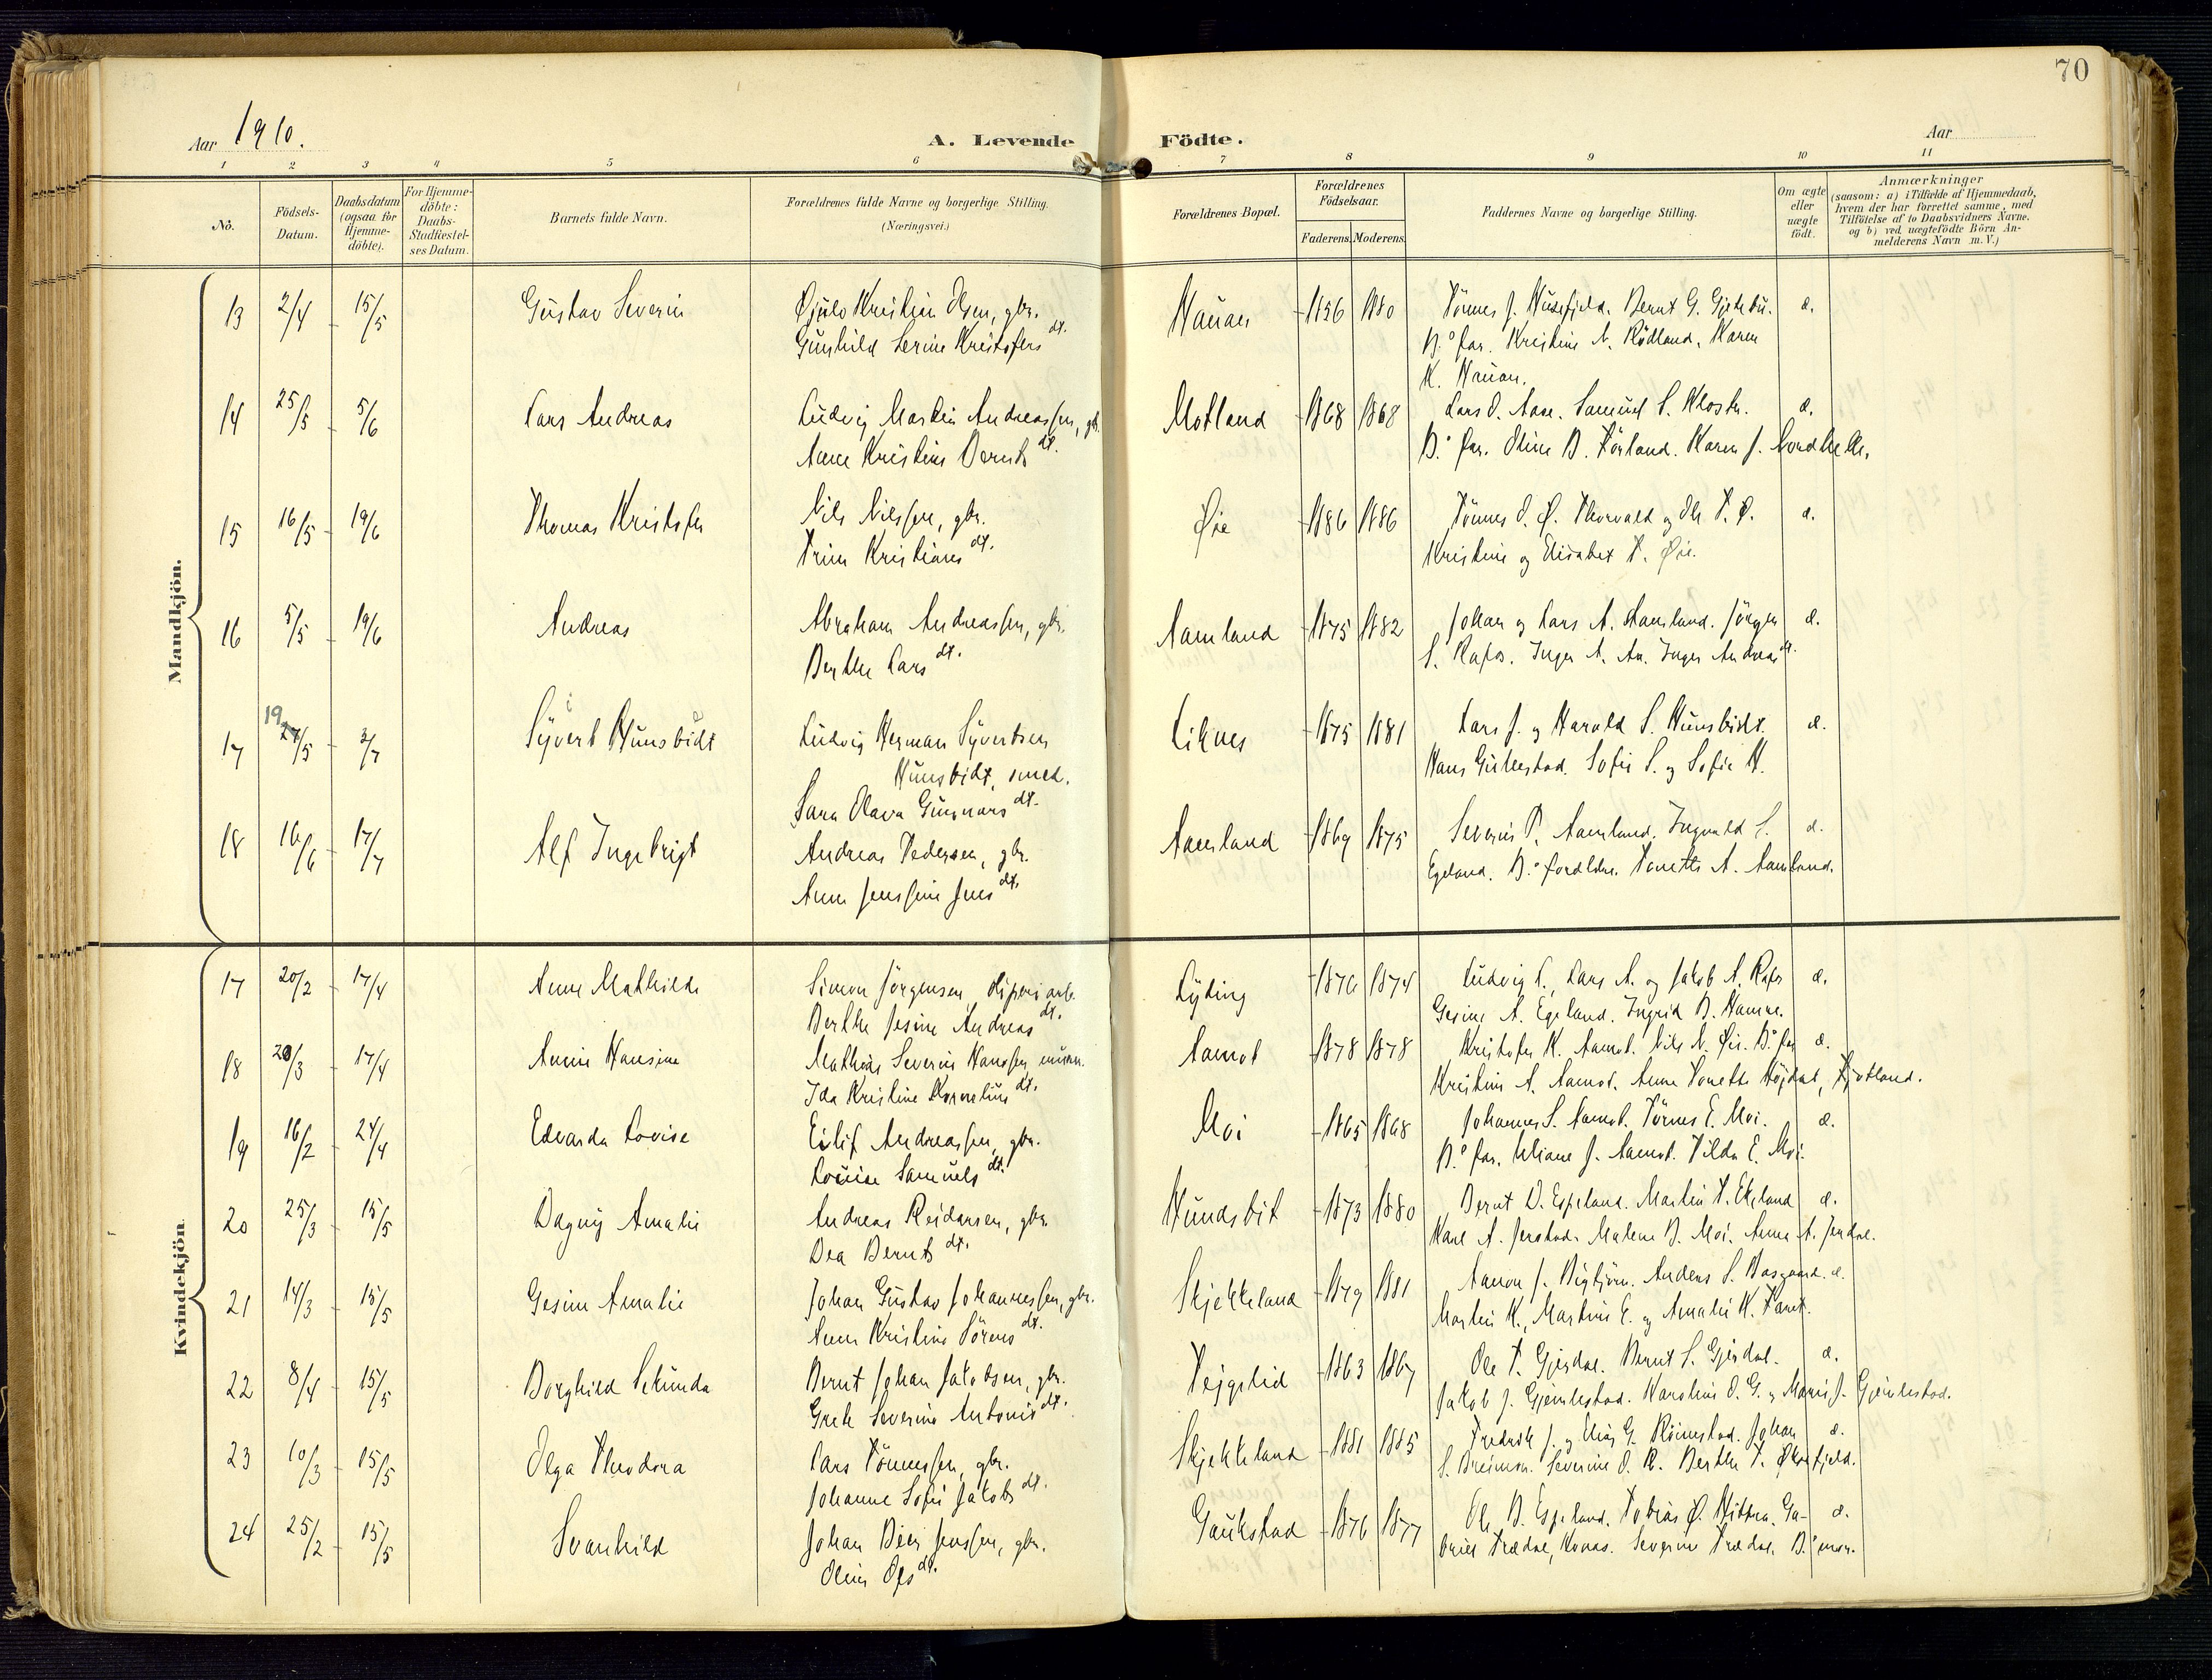 70
Aar 1910.
A. Levende Födte.
Aar
1 2 3 4 5 6 7 8 9 10 11
Nò.
Födsels-Datum.
Daabsdatum (ogsaa för Hjemme-döbte).
For Hjemme-döbte: Daabs-Stadfæstel-ses Datum.
Barnets fulde Navn.
Forældrenes fulde Navne og borgerlige Stilling.
(Næringsvei.)
Forældrenes Bopæl.
Forældrenes Födselsaar.
Faderens. Moderens.
Faddernes Navne og borgerlige Stilling.
Om ægte eller uægte födt.
Anmærkninger
(saasom: a) i Tilfælde af Hjemmedaab,
hvem der har forrettet samme, med
Tilföielse af to Daabsvidners Navne.
og b) ved uægtefödte Börn An-
melderens Navn m. V.)
Mandkjön.
13 2/4 - 15/5 Gustav Severin Øjulv Kristian Olsen, gbr. Hauan 1856 1880 Tönnes J. Husefjeld. Bernt G. Gjetebu. æ.
Gunhild Serine Kristofers dt. B.° far. Kristine N. Rödland. Karen
K. Hauan.
14 25/5 - 5/6 Lars Andreas Ludvig Martin Andreassen, gbr. Motland 1868 1868 Lars O. Aase. Samuel S. Kloster. æ.
Anne Kristine Bernts dt. B.° far. Oline B. Förland. Karen J. Nordbekk.
15 16/5 - 19/6 Thomas Kristofer Nils Nilssen, gbr. Øie 1886 1886 Tönnes O. Ø. Thorvald og Ole T. Ø. æ.
Trine Kristians dt. Kristine og Elisabet T. Øie.
16 5/5 - 19/6 Andreas Abraham Andreassen, gbr. Aamland 1875 1882 Johan og Lars A. Aamland. Jörgen æ.
Berthe Lars dt. S. Rafos. Inger A. Aa. Inger Andreas dt.
17 19 27/5 - 3/7 Syvert Hunsbidt Ludvig Herman Syvertsen Liknes 1875 1881 Lars J. og Harald S. Hunsbidt. æ.
Hunsbidt, smed. Hans Gullestad. Sofie S. og Sofie H.
Sara Olava Gunnars dt.
18 16/6 - 17/7 Alf Ingebrigt Andreas Pedersen, gbr. Aamland 1869 1875 Severin P. Aamland. Ingvald S. æ.
Anne Jenssine Jens dt. Egeland. B.° forældre. Tonette A. Aamland.
Kvindekjön
17 20/2 - 17/4 Anne Mathilde Simon Jörgensen, sliperiarb. Lyding 1876 1874 Ludvig S., Lars A. og Jakob A. Rafos æ.
Berthe Jesine Andreas dt. Gesine A. Egeland. Ingrid B. Hamre.
18 20/3 - 17/4 Annie Hansine Mathias Severin Hanssen, murer. Aamot 1878 1878 Kristofer K. Aamot. Nils N. Øie. B.° far æ.
Ida Kristine Kornelius dt. Kristine A. Aamot. Anne Tonette Höjdal, Fjotland.
19 16/2 - 24/4 Edvarda Lovise Eilif Andreassen, gbr. Moi 1865 1868 Johannes S. Aamot. Törnes E. Moi. æ.
Louise Samuels dt. B.° far. Uliane J. Aamot. Tilda E. Moi.
20 25/3 - 15/5 Dagny Amalie Andreas Reidarsen, gbr. Hundsbit 1873 1880 Bernt D. Espeland. Martin T. Ekeland æ.
Dea Bernts dt. Karl A. Jerstad. Malene B. Moi. Anna A.
21 14/3 - 15/5 Gesine Amalie Johan Gustav Johannessen, gbr. Skjekkeland 1879 1881 Aanon J. Bigtjörn. Anders S. æ.
Anne Kristine Sörens dt. Martin K., Martine E. og Amalie K.
22 8/4 - 15/5 Borghild Sekunda Bernt Johan Jakobsen, gbr. Vejgelid 1863 1867 Ole T. Gjerdal. Bernt S. Gjerdal. æ.
Grete Severine Antonis dt. Jakob J. Gjemlestad. Karoline O. G. og Marie J. Gjemlestad.
23 10/3 - 15/5 Olga Theodora Lars Tönnessen, gbr. Skjekkeland 1881 1885 Fredrik J. og Elias G. Röinestad. Johan æ.
Johanne Sofie Jakobs dt. S. Breimon. Severine O. R. Berthe T.
24 25/2 - 15/5 Svanhild Johan Beer Jenssen, gbr. Gaukstad 1876 1877 Ole B. Espeland. Tobias Ø. Ga- æ.
Oline Ols dt. briel Trædal, Kvinas. Severine Trædal. B.° mor.